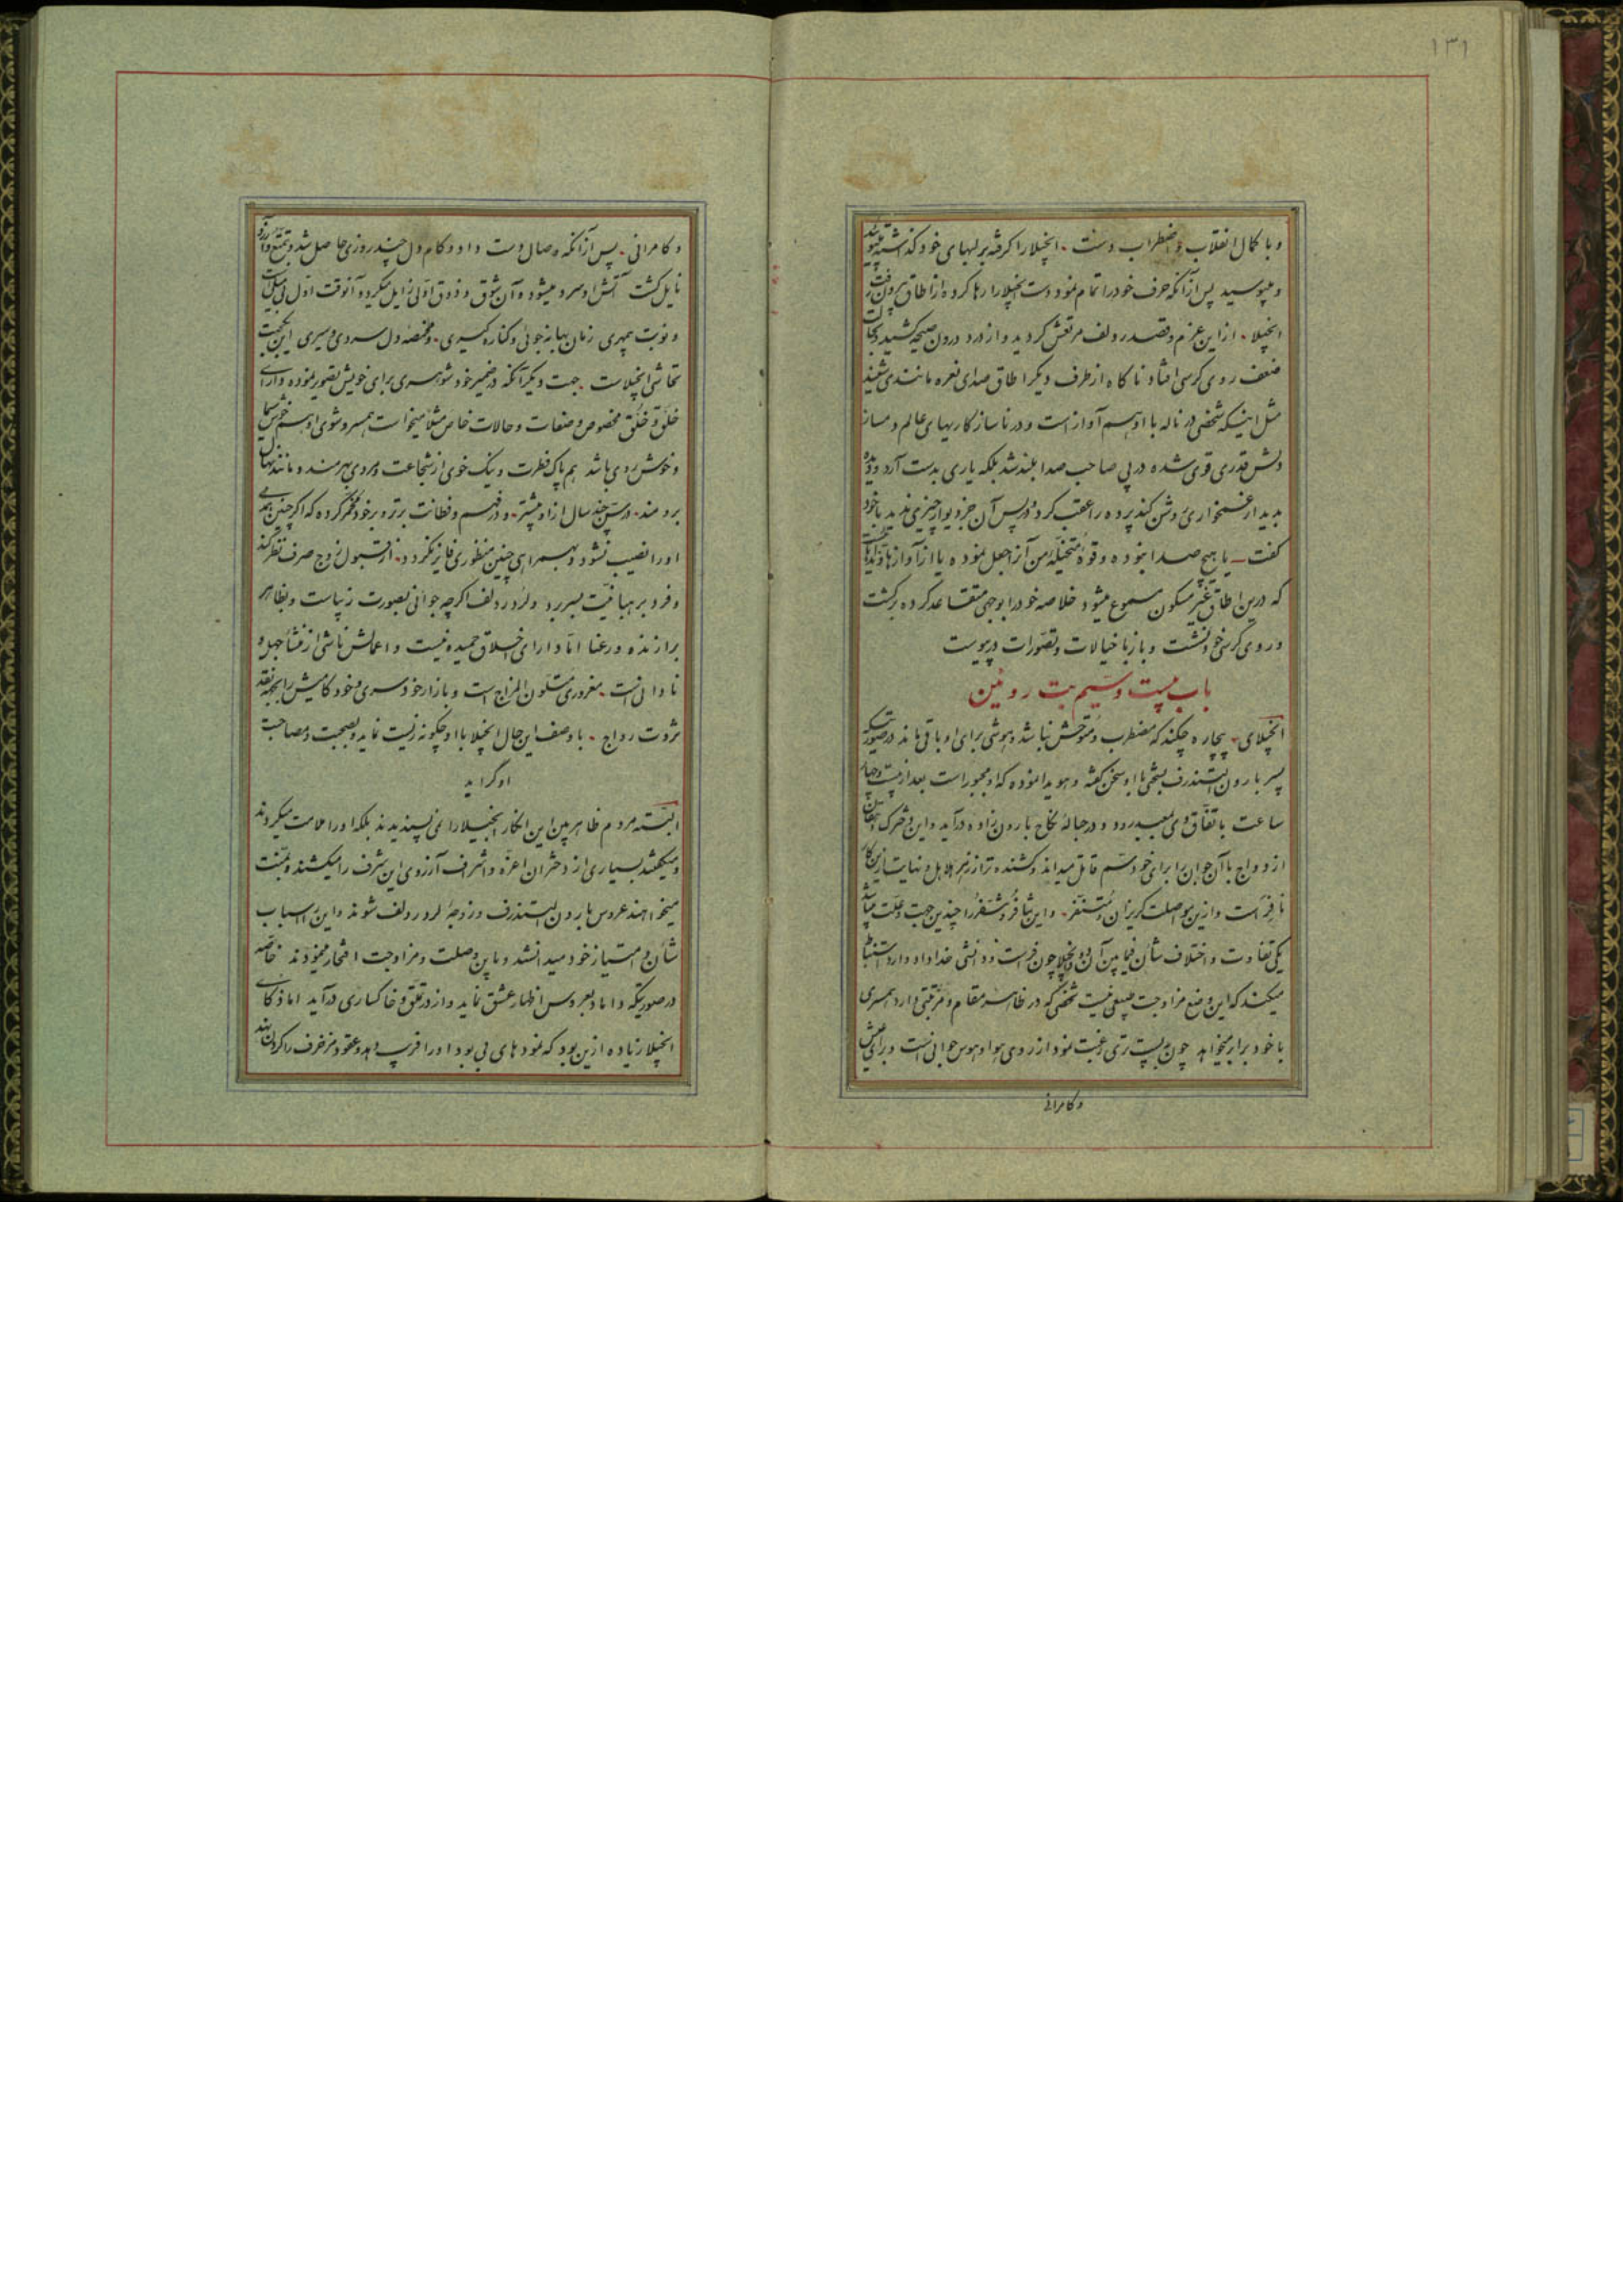 ۱۳۱
و با کمال انقلاب و اضطراب دست انجیلا را گرفته بر لبهای خود گذاشته
و میبوسید پس از آنکه حرف خود را تمام نمود دست انجیلا را رها کرده از اطاق بیرون رفت
انجیلا از این عزم و قصد ردولف مرتعش گردید و از درد درون صیحه کشید و بحالت
ضعف روی کرسی افتاد ناگاه از طرف دیگر اطاق صدای نعره مانندی شنید
مثل اینکه شخصی در ناله با او هم آواز است و در ناسازگاریهای عالم دمساز
دلش قدری قوی شده در پی صاحب صدا بلند شد بلکه یاری بدست آرد و دیده
بدیدار غمخواری روشن کند پرده را عقب کرد در پس آن جز دیوار چیزی ندید با خود
گفت یا هیچ صدا نبوده و قوه متخیله من آنرا جعل نموده یا از آوازها
که درین اطاق غیر مسکون مسموع میشود خلاصه خود را بوجهی متقاعد کرده برگشت
و روی کرسی خود نشست و باز با خیالات و تصورات در پیوست
باب بیست و سیم بت روئین
انجیلای بیچاره چکند که مضطرب و متوحش نباشد و هوشی برای او باقی ماند در صورتیکه
پسر بارون لیستندرف بتحکم با او سخن گفته و هویدا نموده که او مجبور است بعد از بیست و چهار
ساعت باتفاق وی بمعبد رود و در حباله نکاح بارون زاده درآید و این دخترک
ازدواج با آن جوان را برای خود سم قاتل میداند و کشنده تر از زهر هلاهل و نهایت ازین کار
نافر است و ازین مواصلت گریزان و متنفر و این تنافر و تنفر را چندین جهت و علت میباشد
یکی تفاوت و اختلاف شأن فیمابین آن دو و انجیلا چون فراست و دانشی خداداد دارد استنباط
میکند که این وضع مزاوجت طبیعی نیست شخصی که در ظاهر مقام و مرتبتی دارد همسری
با خود برابر میخواهد چون به پست تری رغبت نمود از روی هوا و هوس جوانی است و برای عیش
و کامرانی
و کامرانی پس از آنکه وصال دست داد و کام دل چند روزی حاصل شد و بتمتع و آرزو
نایل گشت آتش او سرد میشود و آن شوق و ذوق اولی زایل میگردد آنوقت اول بی میلی است
و نوبت بیمهری زمان بهانه جوئی و کناره گیری و مخمصه دل سردی و سیری این یکجهت
تحاشی انجیلاست جهت دیگر آنکه در ضمیر خود شوهری برای خویش تصور نموده و دارای
خلق و خلق مخصوص و صفات و حالات خاص مثلا میخواست همسر و شوی او هم خوش سیما
و خوش روی باشد هم پاک فطرت و نیک خوی از شجاعت و مردی بهره مند و مانند نهال
برومند در سن چند سال از او بیشتر و در فهم و فطانت برتر و بر خود مخمر کرده که اگر چنین همسری
او را نصیب نشود و بهمراهی چنین منظوری فایز نگردد از قبول زوج صرف نظر کند
و فرد بر هبانیت بسر برد و لرد ردولف اگرچه جوانی بصورت زیباست و بظاهر
برازنده و رعنا اما دارای اخلاق حمیده نیست و اعمالش ناشی از منشأ جهل و
نادانی است مغروری متلون المزاج است و بازار خودسری و خود کامیش رایج بنقد
ثروت رواج با وصف این حال انجیلا با او چگونه زیست نماید و بصحبت و مصاحبت
او گراید
البته مردم ظاهر بین این انکار انجیلا را نمی پسندیدند بلکه او را ملامت میکردند
و میگفتند بسیاری از دختران اعزه و اشراف آرزوی این شرف را میکشند و بمنت
میخواهند عروس بارون لیستندرف و زوجه لرد ردولف شوند و این را اسباب
شأن و امتیاز خود میدانستند و باین وصلت و مزاوجت افتخار مینمودند خاصه
در صورتیکه داماد بعروس اظهار عشق نماید و از در تملق و خاکساری درآید اما ذکای
انجیلا زیاده ازین بود که نمودهای بی بود او را فریب دهد و عقود مزخرف را گردن بند